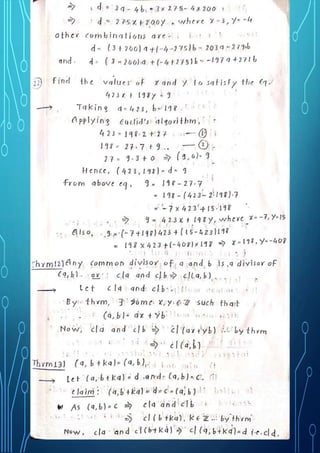 ⇒ 1 d = 3a - 4b. = 3 × 275 - 4 × 200
⇒ d = 275x + 200y , where x = 3, y = -4
other combinations are :
d = (3+200)a + (-4-275)b = 203a - 279b
and. d = (3-200)a + (-4+275)b = -197a + 271b
2) Find the values of x and y to satisfy the eq.
423x + 198y = 9
→ Taking a = 423, b = 198
Applying Euclid's algorithm,
423 = 198·2 + 27 — (1)
198 = 27·7 + 9 — (2)
27 = 9·3 + 0 ⇒ (9,0) = 9
Hence, (423, 198) = d = 9
From above eq, 9 = 198 - 27·7
= 198 - (423 - 2·198)·7
= -7 × 423 + 15·198
⇒ 9 = 423x + 198y, where x = -7, y = 15
Also, 9 = (-7+198)423 + (15-423)198
= 191 × 423 + (-408) × 198 ⇒ x = 191, y = -408
Thrm 12) Any common divisor of a and b is a divisor of
(a,b). or: c|a and c|b ⇒ c|(a,b).
→ Let c|a and c|b
By thrm, ∃ some x, y ∈ Z such that
(a,b) = ax + yb
Now, c|a and c|b ⇒ c|(ax+yb) ∴ by thrm
⇒ c|(a,b)
Thrm 13) (a, b+ka) = (a,b).
→ Let (a, b+ka) = d and (a,b) = c.
claim: (a, b+ka) = d = c = (a,b)
As (a,b) = c ⇒ c|a and c|b
⇒ c|(b+ka), k ∈ Z ∵ by thrm
Now, c|a and c|(b+ka) ⇒ c|(a, b+ka) = d i.e. c|d.